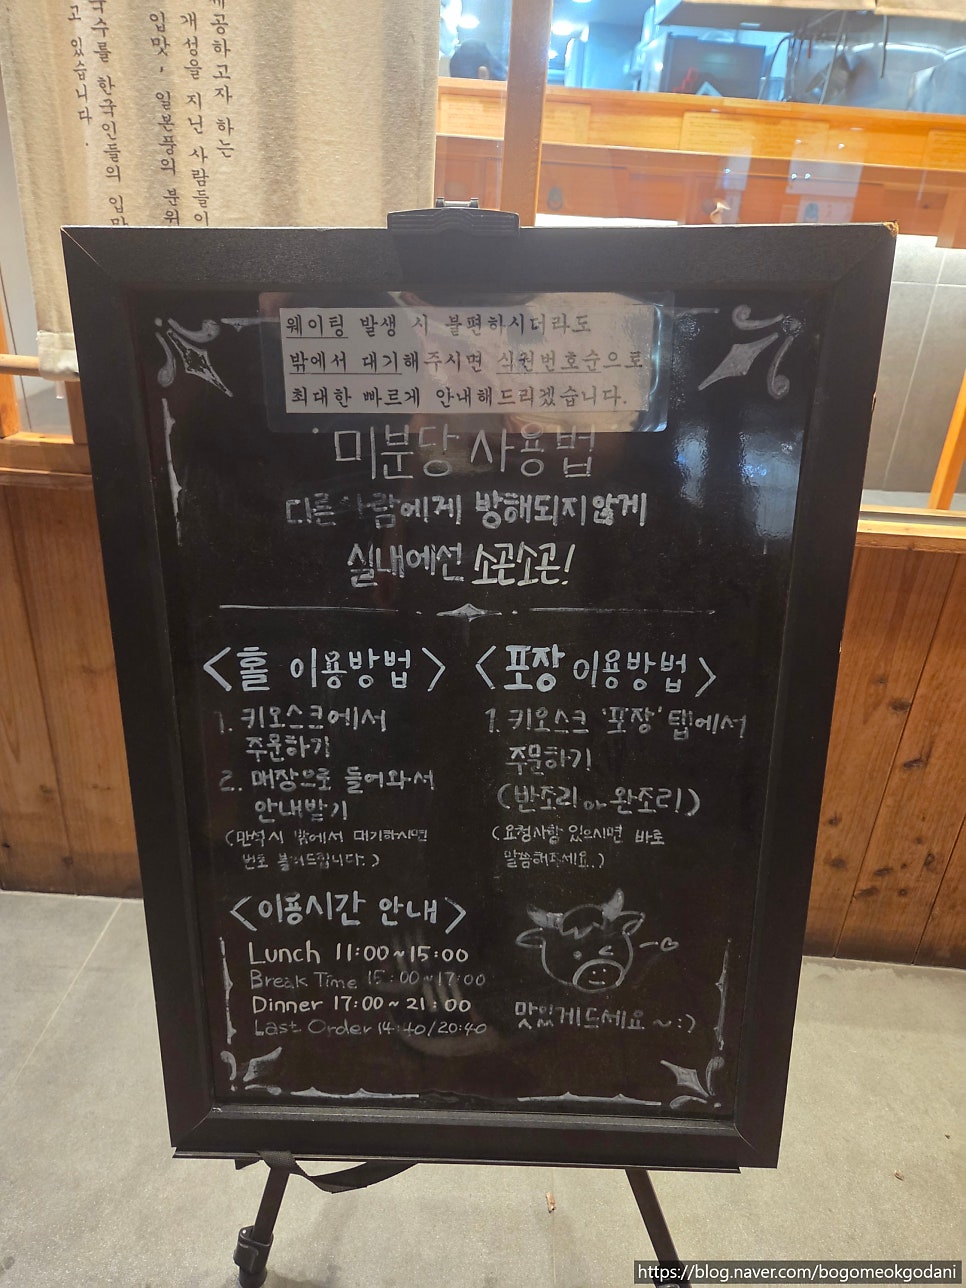 제공하고자 하는
개성을 지닌 사람들이
입맛, 일본풍의 분위
국수를 한국인들의 입맛
고 있습니다.
웨이팅 발생 시 불편하시더라도
밖에서 대기해주시면 식권번호순으로
최대한 빠르게 안내해드리겠습니다.
미분당 사용법
다른 사람에게 방해되지않게
실내에선 소곤소곤!
<홀 이용방법>
1. 키오스크에서
주문하기
2. 매장으로 들어와서
안내받기
(만석시 밖에서 대기하시면
번호 불러드립니다.)
<포장 이용방법>
1. 키오스크 '포장' 탭에서
주문하기
(반조리 or 완조리)
(요청사항 있으시면 바로
말씀해주세요.)
<이용시간 안내>
Lunch 11:00~15:00
Break Time 15:00~17:00
Dinner 17:00~21:00
Last Order 14:40/20:40
맛있게드세요~:)
https://blog.naver.com/bogomeokgodani